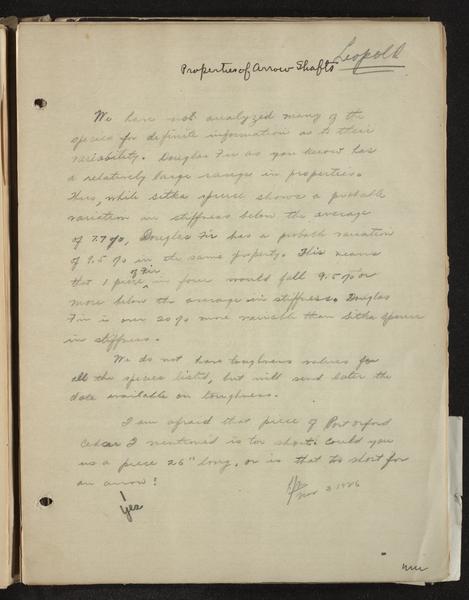 Leopold
Properties of Arrow Shafts
We have not analyzed many of the
species for definite information as to their
variability. Douglas Fir as you know has
a relatively large range in properties.
Thus, while sitka spruce shows a probable
variation in stiffness below the average
of 7.7%, Douglas Fir has a probable variation
of 9.5% in the same property. This means
of Fir
that 1 piece in four would fall 9.5% or
more below the average in stiffness. Douglas
Fir is over 20% more variable than Sitka spruce
in stiffness.
We do not have toughness values for
all the species listed, but will send later the
data available on toughness.
I am afraid that piece of Port Orford
Cedar I mentioned is too short. Could you
us a piece 26" long, or is that too short for
an arrow?
Nov 3 1926
Yes